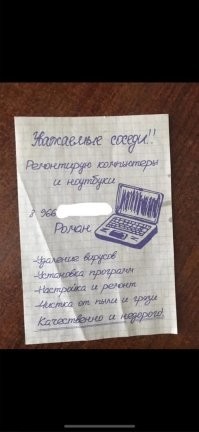 Уважаемые соседи!!
Ремонтирую компьютеры
и ноутбуки
8 966
Роман
-Удаление вирусов
-Установка программ
-Настройка и ремонт
-Чистка от пыли и грязи
Качественно и недорого!